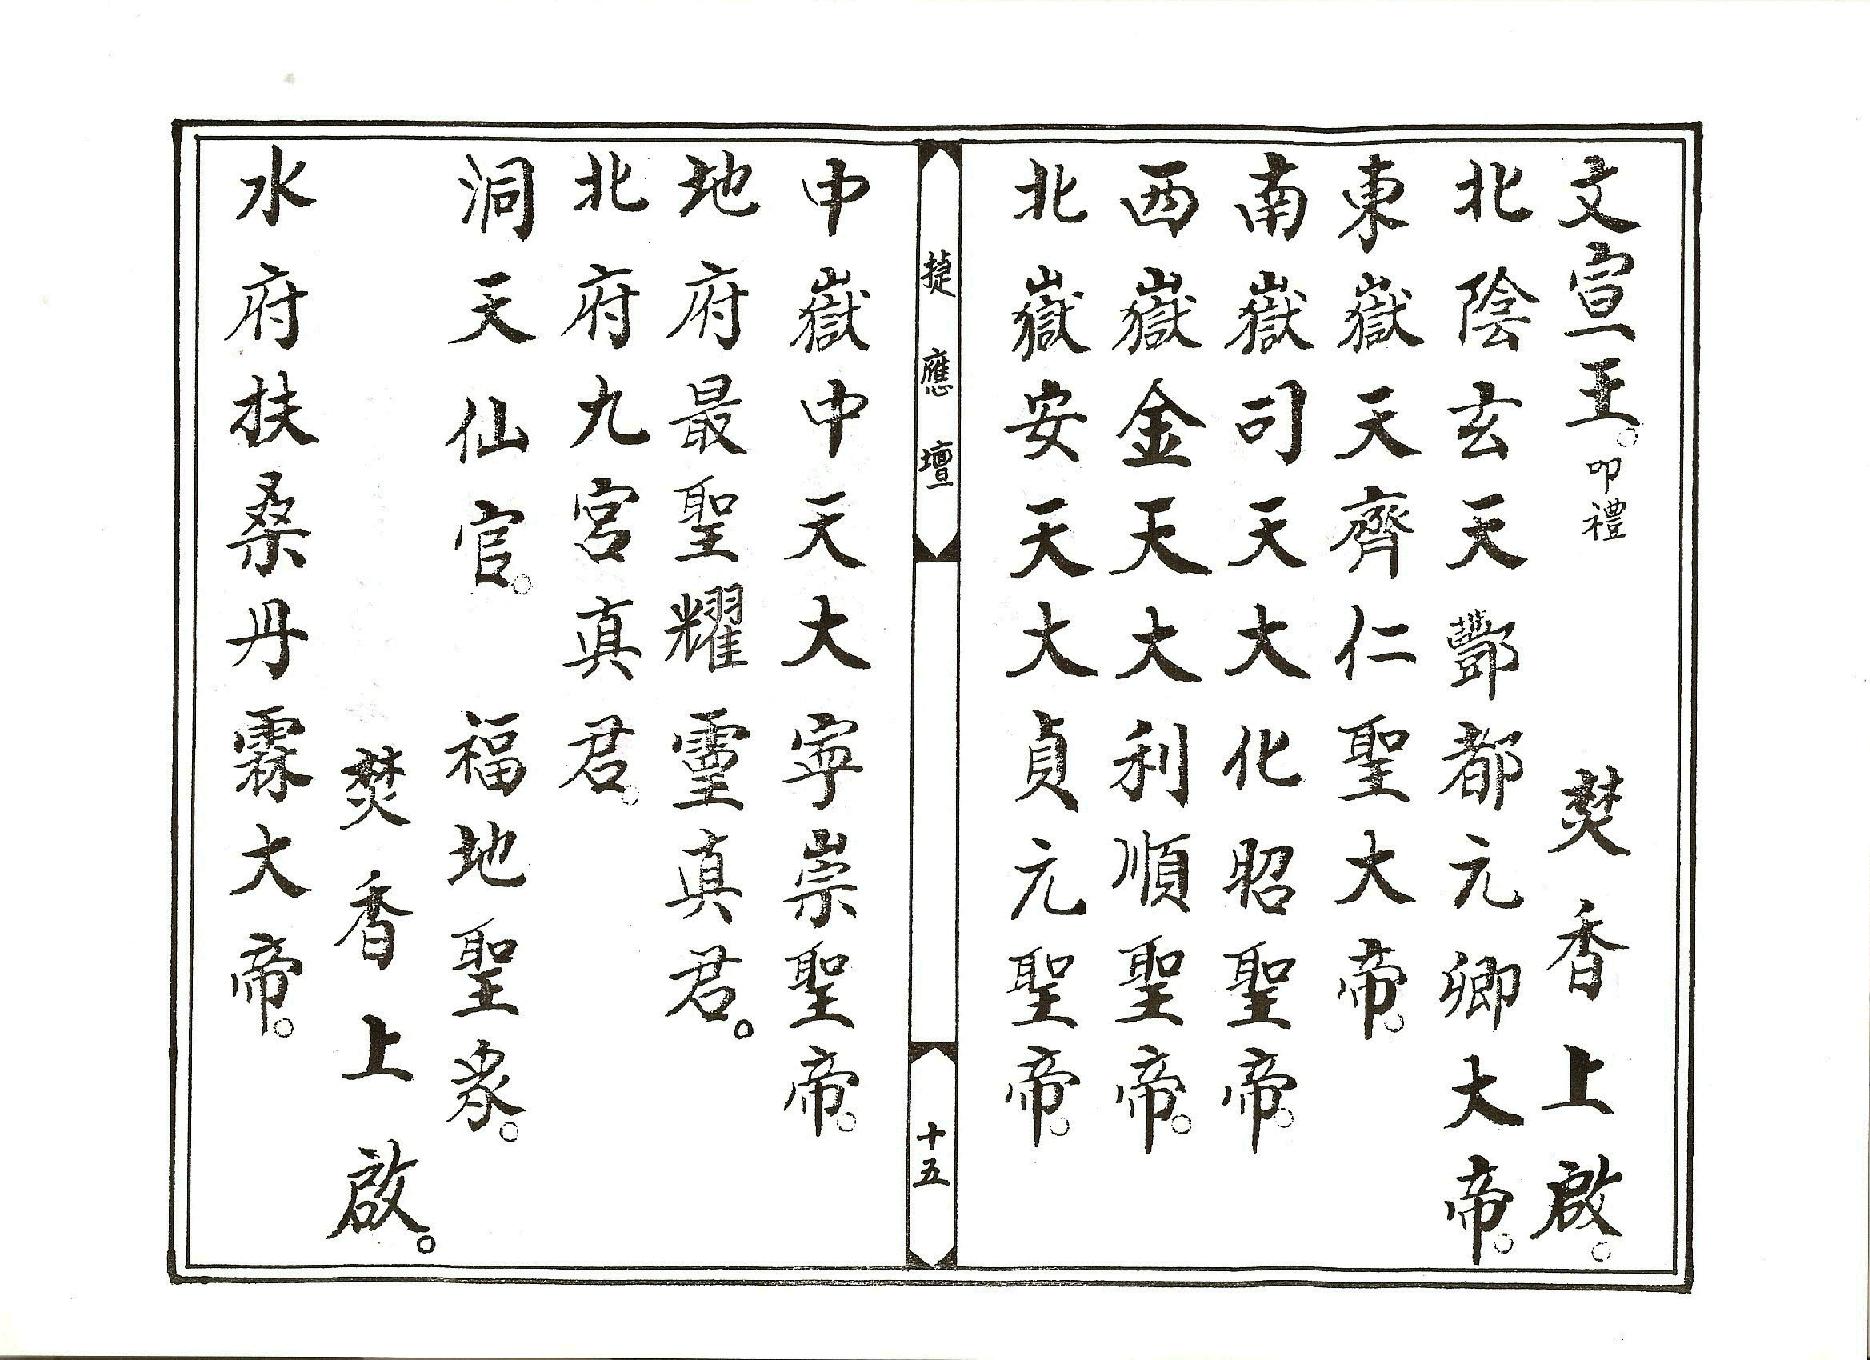 文宣王。叩禮　焚香上啟。
北陰玄天酆都元卿大帝。
東嶽天齊仁聖大帝。
南嶽司天大化昭聖帝。
西嶽金天大利順聖帝。
北嶽安天大貞元聖帝。
捷應壇
十五
中嶽中天大寧崇聖帝。
地府最聖耀靈真君。
北府九宮真君。
洞天仙官。　福地聖象。
焚香上啟。
水府扶桑丹霖大帝。